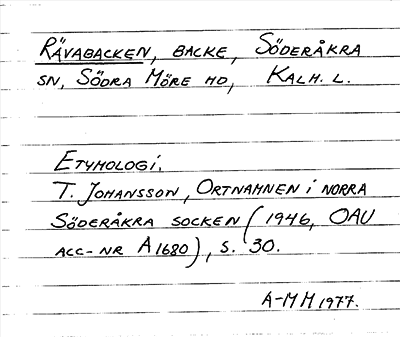 RÄVABACKEN, BACKE, SÖDERÅKRA
SN, SÖDRA MÖRE HD, KALM. L.
ETYMOLOGI.
T. JOHANSSON, ORTNAMNEN I NORRA
SÖDERÅKRA SOCKEN (1946, OAU
ACC-NR A1680), S. 30.
A-MM 1977.